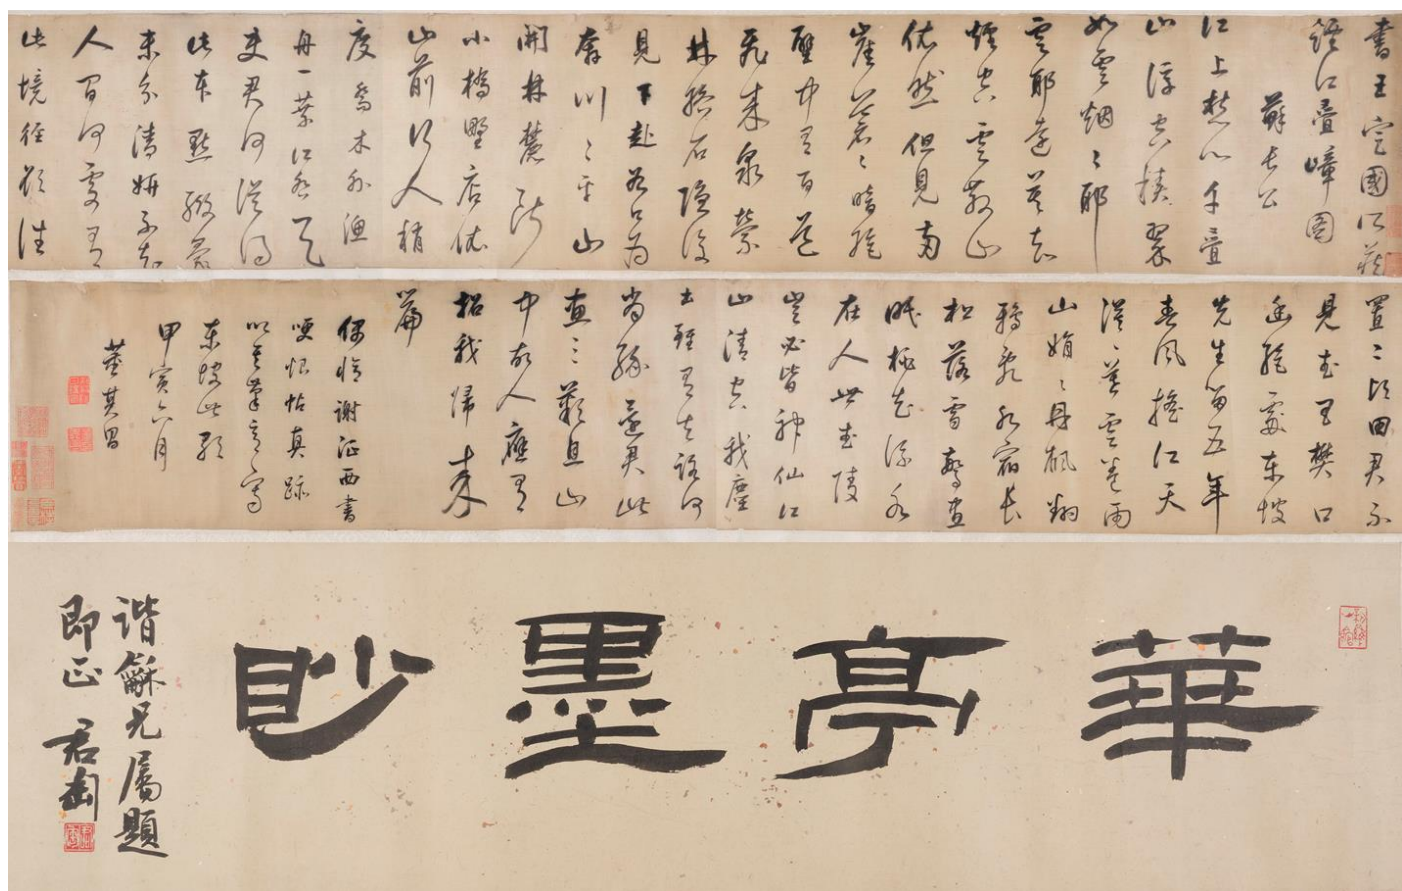 書王定國所藏
煙江疊嶂圖
蘇長公
江上愁心千疊
山浮空積翠
如雲烟〻耶
雲耶遠莫知
煙空雲散山
依然但見兩
崖蒼〻暗絕
壁中有百道
飛來泉縈
林絡石隱復
見下赴谷口為
奔川〻平山
開林麓斷
小橋野店依
山前行人稍
度喬木外漁
舟一葉江吞天
使君何從得
此本點綴毫
末分清妍不知
人間何處有
此境徑欲往
置二頃田君不
見武昌樊口
幽絕處東坡
先生留五年
春風搖江天
漠〻暮雲卷雨
山娟〻丹楓翻
鴉飛水宿長
松落雪驚晝
眠桃花流水
在人世武陵
豈必皆神仙江
山清空我塵
土雖有去路何
尚緣還君此
畫三歎息山
中故人應有
招我歸來
篇
偶臨謝征西書
哽恨帖真跡
以其筆意寫
東坡此歌
甲寅六月
董其昌
華亭墨眇
諧龢兄屬題
即正 君匋